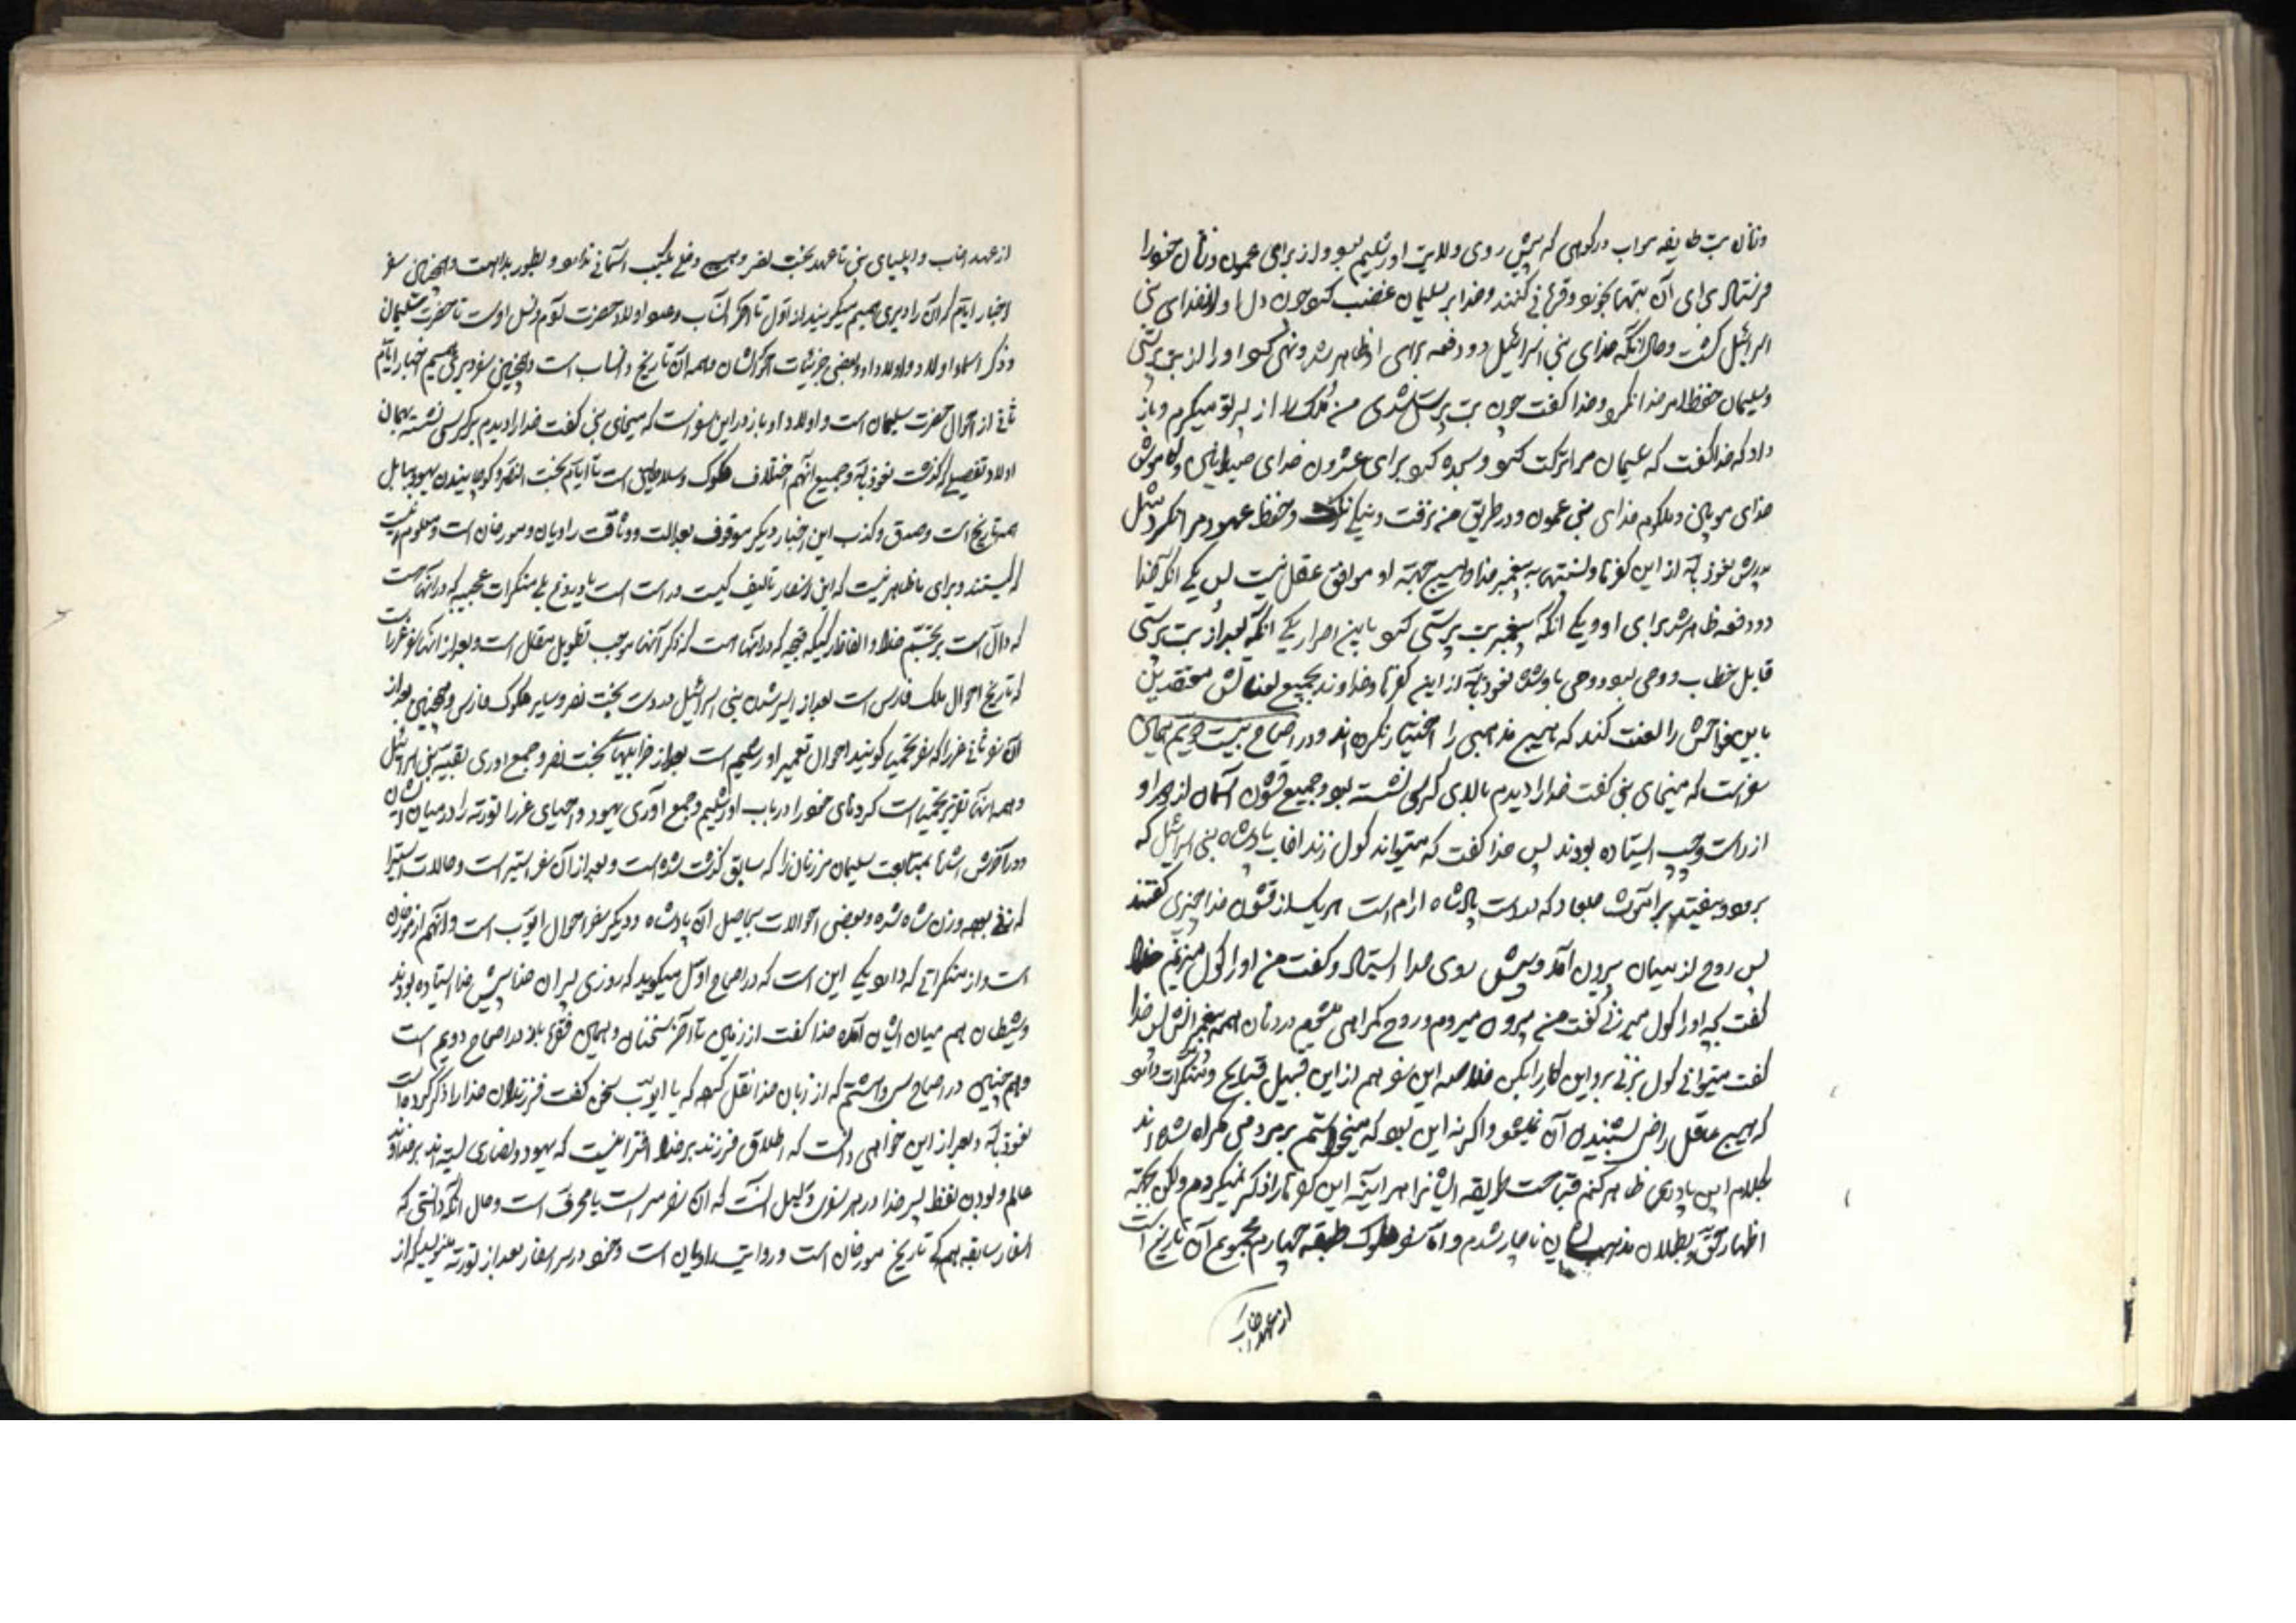 وزنان بت طایفه موآب در کوهی که پیش روی ولایت اورشلیم بود و از برای عمون و زنان خود را
فرستاد برای آن بتها بخور و قربانی کنند و خدا بر سلیمان غضب کرد چون دل او از خدای بنی
اسرائیل گشت و حال آنکه خدای بنی اسرائیل دو دفعه برای او ظاهر شد و نهی کرد او را از بت پرستی
و سلیمان حفظ امر خدا نکرد و خدا گفت چون بت پرست شدی من ملک را از پسر تو میگیرم و باز
داد که خدا گفت که سلیمان مرا ترک کرد و سجده کرد برای عشترون خدای صیدانیین و کموش
خدای موآبین و ملکوم خدای بنی عمون و در طریق من نرفت و نیکی نکرد و حفظ عهود مرا نکرد مثل
پدرش نعوذ بالله از این کفرها و نسبتها به پیغمبر خدا و هیچ جهته او موافق عقل نیست پس یکی آنکه خدا
دو دفعه ظاهر شد برای او و یکی آنکه پیغمبر بت پرستی کند باین اصرار یکی آنکه بعد از بت پرستی
قابل خطاب و وحی بود و وحی باو شده نعوذ بالله از این کفرها و خداوند بجمیع لعناتش معتقدین
باین را لعنت کند که هیچ مذهبی را اختیار نکرده اند و در اصحاح بیست و دویم همان
سفر است که میخای نبی گفت خدا را دیدم بالای کرسی نشسته بود و جمیع قشون آسمان نزد او
از راست و چپ ایستاده بودند پس خدا گفت که میتواند گول زند اخاب پادشاه بنی اسرائیل که
برود و بیفتد جلعاد که بدست پادشاه ارام است هر یک از قشون خدا چیزی گفتند
پس روح از میان بیرون آمد و پیش روی خدا ایستاد و گفت من او را گول میزنم خدا
گفت بچه او را گول میزنی گفت من بیرون میروم و روح گمراهی میشوم در دهان همه پیغمبرانش پس خدا
گفت میتوانی گول بزنی برو این کار را بکن خلاصه این سفر هم از این قبیل قبایح و منکرات دارد
که هیچ عاقل راضی بشنیدن آن نمیشود و اگر نه این بود که میخواستم بر مردمی که گمراه شده اند
بکلام این پادری ظاهر کنم قباحت طریقه ایشانرا هر آینه این کفرها را ذکر نمیکردم ولکن بجهته
اظهار حق و بطلان مذهب ایشان ناچار شدم و اما سفر ملوک طبقه چهارم مجموع آن تاریخ است
از عهد اخاب
از عهد اخاب و ایلیای نبی تا عهد بخت نصر و دخلی بکتب آسمانی ندارد و همچنین سفر
اخبار ایام که آن را دبری همیم میگویند از اول تا آخر کتاب اولاد حضرت آدم و نسل اوست تا حضرت سلیمان
و ذکر اسماء اولاد و اولاد او و بعضی جزئیات همه آن تاریخ و انساب است و همچنین سفر دبری همیم اخبار ایام
ثانی از احوال حضرت سلیمان است و اولاد او و باز در این سفر است که میخای نبی گفت خدا را دیدم بر کرسی نشسته بهمان
تفصیل که گذشت نعوذ بالله و جمیع آنهم اختلاف ملوک و سلاطین است تا ایام بخت النصر و کوچانیدن یهود ببابل
همه تاریخ است و صدق و کذب این اخبار دیگر موقوف بعدالت و وثاقت راویان و مورخان است و معلوم نیست
که کیستند و برای ما ظاهر نیست که این اسفار تالیف کیست درست است یا دروغ بلی منکرات عجیبه که در آنها است
که دال است بر تجسم خدا و الفاظ رکیکه قبیحه که در آنها است که ذکر آنها موجب تطویل مقال است و بعد از آنها سفر عزرا است
که تاریخ احوال ملک فارس است بعد از اسیر شدن بنی اسرائیل بدست بخت نصر و سایر ملوک فارس و همچنین بعد از
آن سفر ثانی عزرا که سفر نحمیا گویند احوال تعمیر اورشلیم است بعد از خرابیهای بخت نصر و جمع آوری بقیه بنی اسرائیل
و همه آنها تقریر نحمیا است کردهای خود را در باب اورشلیم و جمع آوری یهود و احیای عزرا تورته را در میان ایشان
و در آخرش بمتابعت سلیمان مر زنان را که سابق گذشت شده است و بعد از آن سفر استیر است و حالات استیر
که زنی بوده و زن شاه شده و بعضی احوالات بیحاصل آن پادشاه و دیگر سفر احوال ایوب است و آنهم از مورخان
است و از منکراتی که دارد یکی این است که در اصحاح اول میگوید که روزی پسران خدا پیش خدا ایستاده بودند
و شیطان هم میان ایشان آمده خدا گفت از زمین تا آخر سخنان و همین فقره باز در اصحاح دویم است
و هم چنین در اصحاح سی و هشتم که از زبان خدا نقل کرده که با ایوب سخن گفت فرزندان خدا را ذکر کرده است
نعوذ بالله و بعد از این خواهی دانست که اطلاق فرزند بر خدا افترائیست که یهود و نصاری بسته اند بر خداوند
عالم و بودن لفظ پسر خدا در هر سفری دلیل آنست که آن سفر محرف است و حال آنکه دانستی که
اسفار سابقه همه تاریخ مورخان است و روایت راویان است و خود در سر اسفار بعد از تورته مینویسد که از